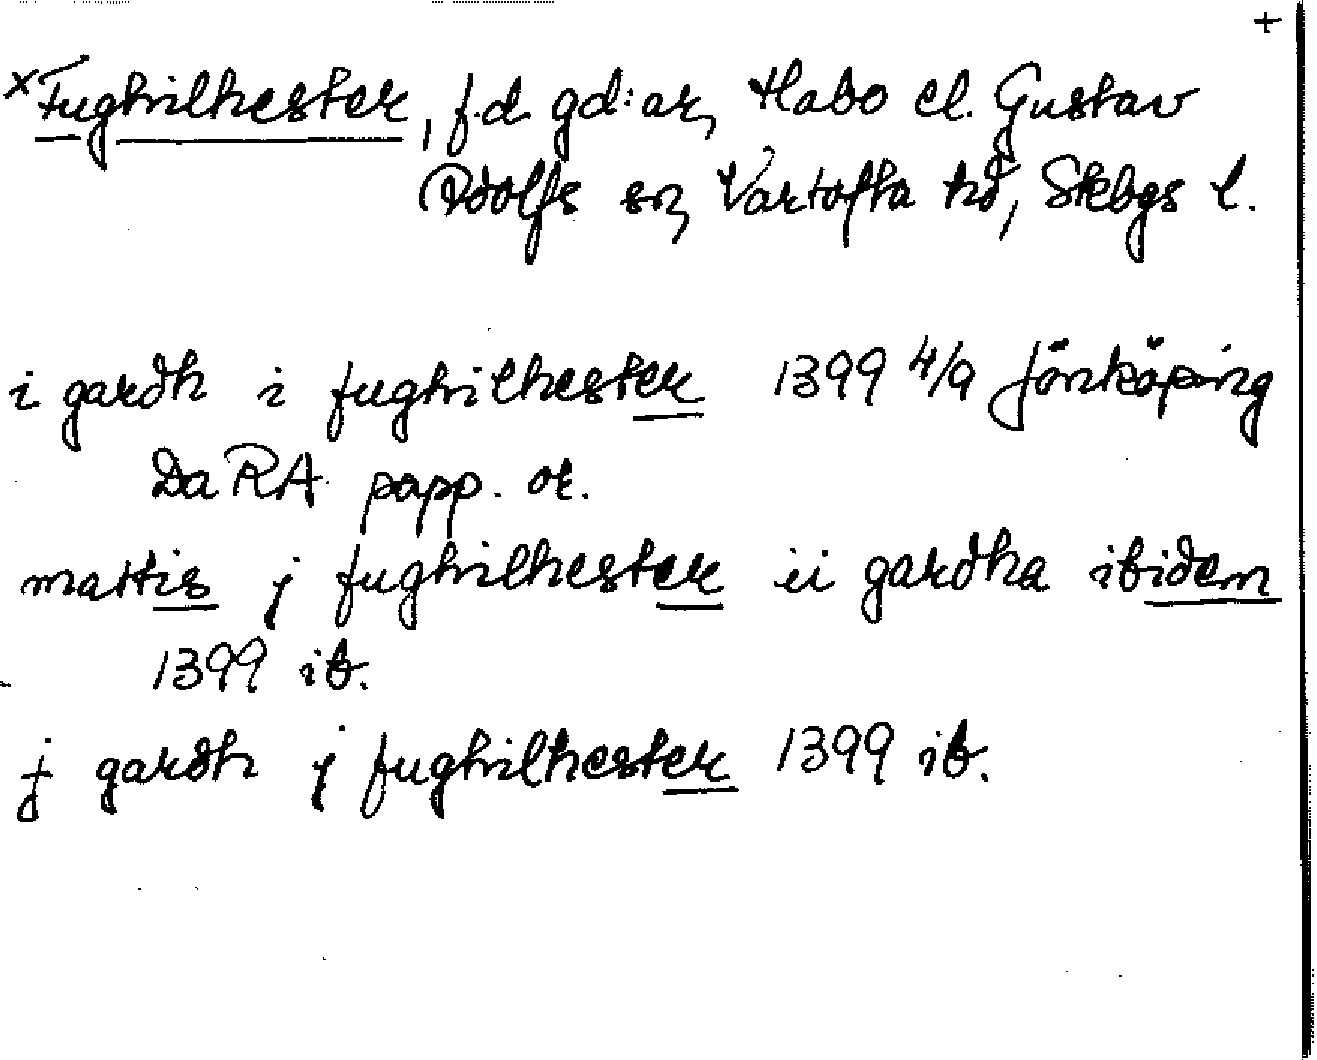 +
×Fughilhester, f.d. gd:ar, Habo el. Gustav
Adolfs sn, Vartofta hd, Skbgs l.
i gardh i fughilhester 1399 4/9 Jönköping
Da RA papp. or.
mattis j fughilhester ii gardha ibidem
1399 ib.
j gardh j fughilhester 1399 ib.